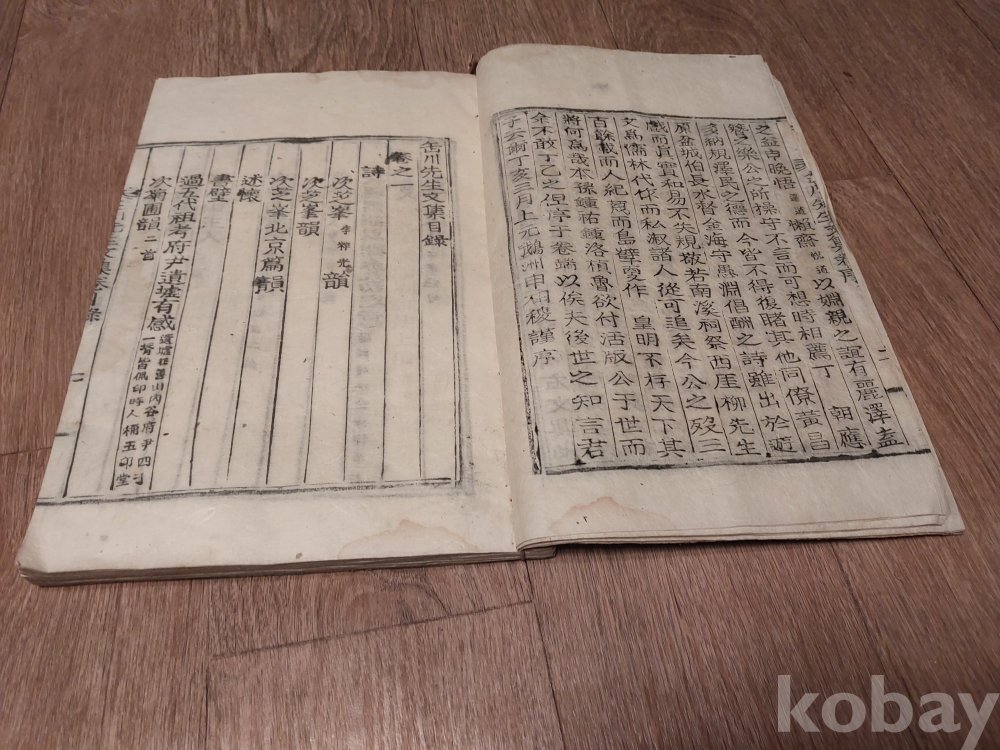 之益申晩悟 達道 懶齋 悅道 以姻親之誼有麗澤之
管之樂公之所操守不言而可想時相薦丁 朝應
多納規澤民之德而今皆不得復睹其他同僚黃昌
原盆城伯長水督金海守愚淵倡酬之詩雖出於遊
戲而貞實和易不失規敬若南溪祠祭西厓柳先生
文爲儒林代依而私淑諸人從可追矣今公之歿三
百餘載而人紀忽而島孽更作 皇明不存天下其
將何爲哉本孫鍾祐鍾洛楨魯欲付活版公于世而
余不敢丁乙之但序于卷端以俟夫後世之知言若
子云爾丁亥三月上元鵝洲申相稷謹序
缶川先生文集目錄
卷之一
詩
次芝峯 李睟光 韻
次芝峯韻
次芝峯北京篇韻
述懷
書壁
過五代祖考府尹遺墟有感
次菊圃韻 二首
kobay